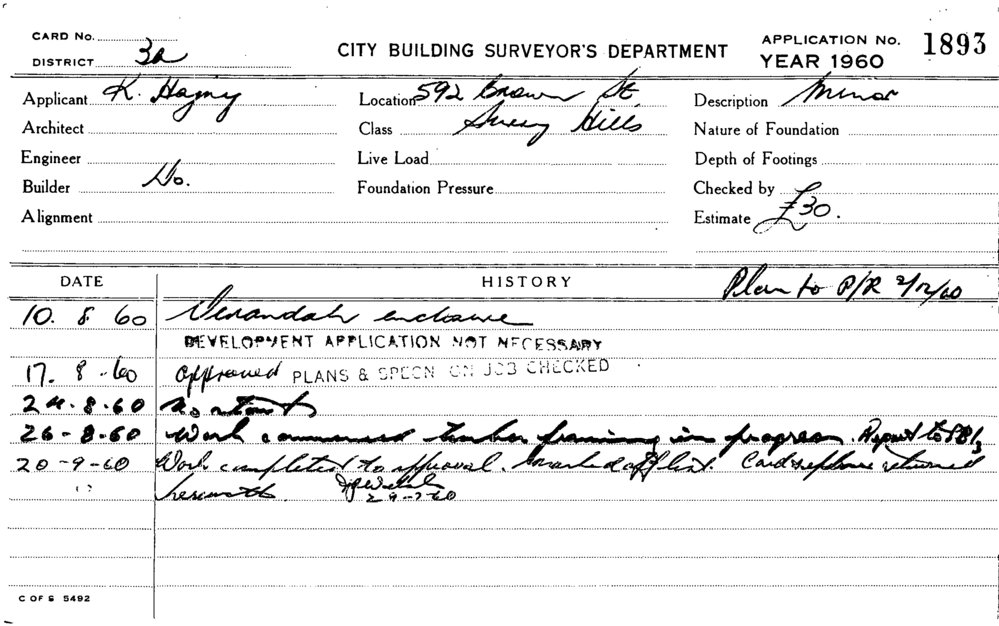 CARD No.
DISTRICT 3a
CITY BUILDING SURVEYOR'S DEPARTMENT
APPLICATION No. 1893
YEAR 1960
Applicant K.
Location 592 St
Description Minor
Architect
Class Surry Hills
Nature of Foundation
Engineer
Live Load
Depth of Footings
Builder Do.
Foundation Pressure
Checked by
Alignment
Estimate £30.
DATE
HISTORY
Plan to P/R
10. 8 60 Verandah enclosure
DEVELOPMENT APPLICATION NOT NECESSARY
17. 8 -60 approved PLANS & SPECN ON JOB CHECKED
24-8-60 No start
26-8-60 Work commenced timber framing in progress. Report to
20-9-60 Work completed to approval. marked off list. Card returned
herewith.
C OF S 5492